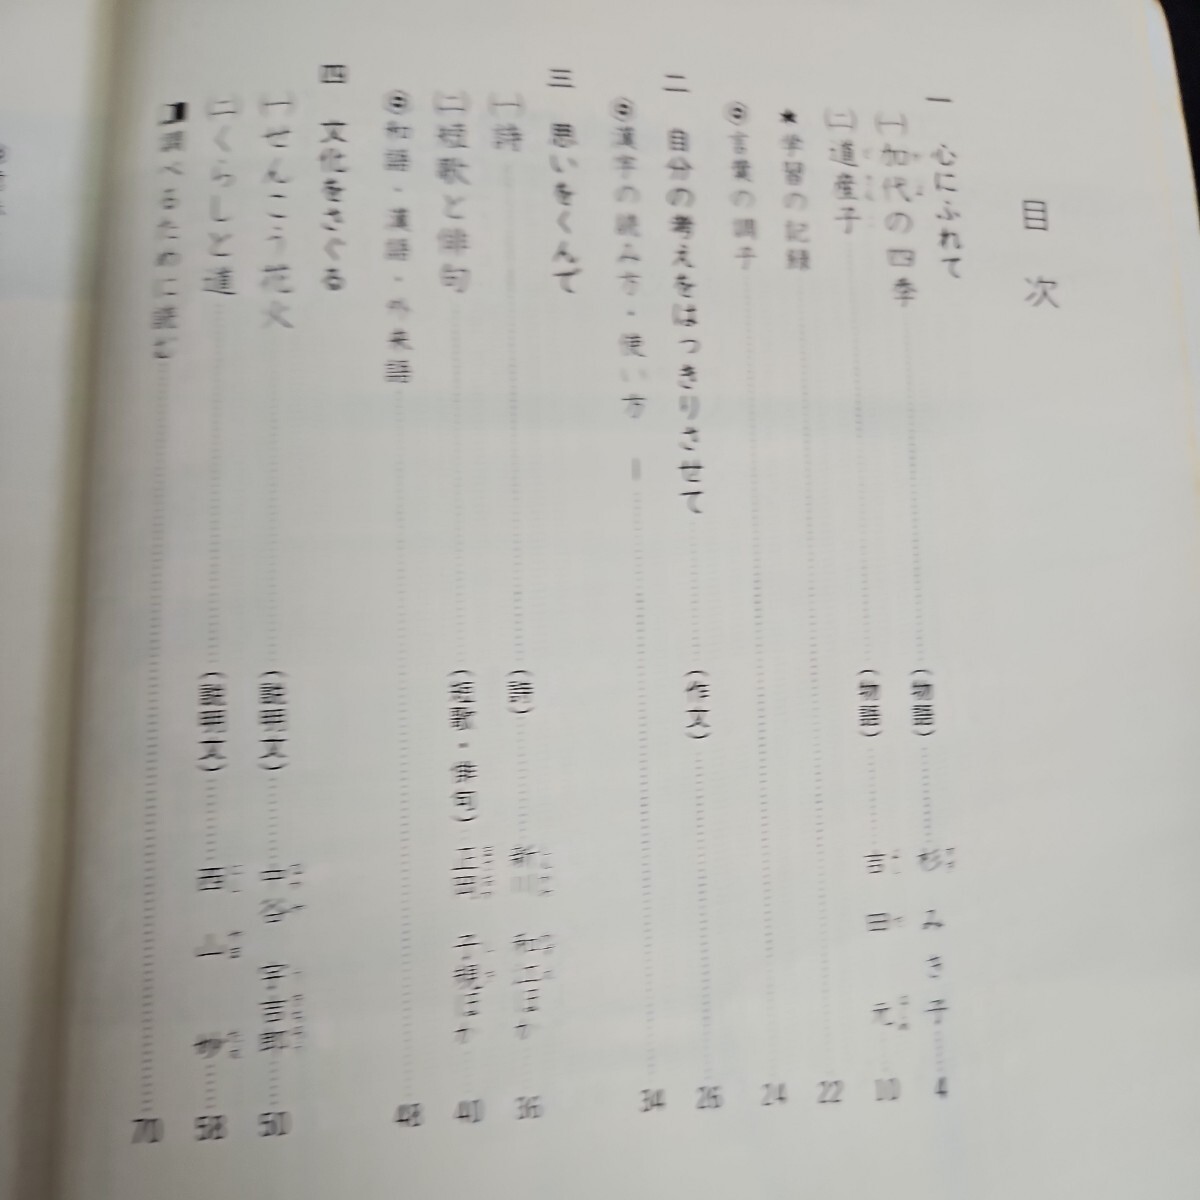 目次
一 心にふれて
㈠加代の四季 (物語) 杉みき子 4
㈡道産子 (物語) 吉田元 10
★学習の記録 22
言葉の調子 24
二 自分の考えをはっきりさせて (作文) 26
漢字の読み方・使い方 34
三 思いをくんで
㈠詩 (詩) 新川和江ほか 36
㈡短歌と俳句 (短歌・俳句) 正岡子規ほか 40
和語・漢語・外来語 48
四 文化をさぐる
㈠せんこう花火 (説明文) 中谷宇吉郎 50
㈡くらしと道 (説明文) 西山妙 58
調べるために読む 70